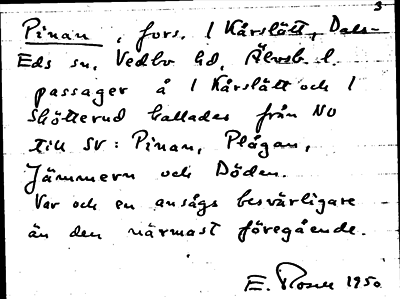 3
Pinan, fors. 1 Kårslätt, Dals-
Eds sn. Vedbo hd. Älvsb l.
passager å 1 Kårslätt och 1
Skötterud kallades från NO
till SV: Pinan, Plågan,
Jämmern och Döden.
Var och en ansågs besvärligare
än den närmast föregående.
E. Rosen 1950